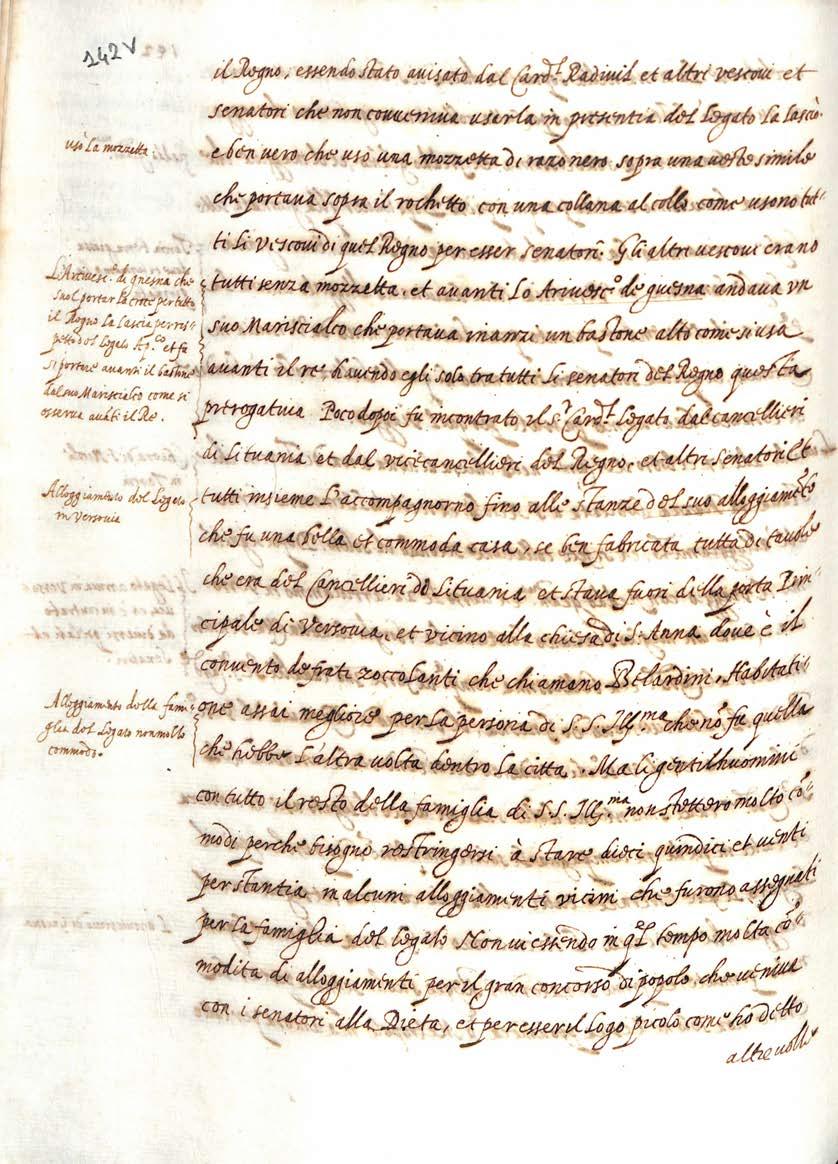 142v
il Regno, essendo stato avisato dal Card.l Radivil et altri vescovi et
senatori che non conveniva usarla in presentia del Legato la lasciò.
usò la mozzetta
e ben vero che uso una mozzetta di razo nero sopra una veste simile
che portava sopra il rochetto con una collana al collo come usono tut-
ti li vescovi di quel Regno per esser senatori. Gli altri vescovi erano
L'Arcivesc.o di gnesna che
suol portar la croce per tutto
il Regno la lascia per ris-
petto del Legato Ap.co et fa
si portare avanti il bastone
dal suo Marisciallo come si
osserva avāti il Re.
tutti senza mozzetta, et avanti lo Arivesc.o de guesna andava un
suo Marisciallo che portava inanzi un bastone alto come si usa
avanti il re havendo egli solo tra tutti li senatori del Regno questa
prerogativa. Poco dopoi fu incontrato il s.r Card.l Legato dal cancellieri
di Lituania et dal vicecancellieri del Regno, et altri senatori Et
Alloggiamento del Legato
in Versovia
tutti insieme l'accompagnorno fino alle stanze del suo alloggiamēto
che fu una bella et commoda casa, se ben fabricata tutta di tavole
che era del Cancellieri di Lituania et stava fuori della porta Prin-
cipale di Versovia, et vicino alla chiesa di S. Anna dove è il
convento de frati zoccolanti che chiamano Belardini, Habitati-
Alloggiamento della fami-
glia del Legato non molto
commodo.
one assai megliore per la persona di S.S. Ill.ma che nō fu quella
che hebbe l'altra volta dentro la citta. Ma li gentilhuomini
con tutto il resto della famiglia di S.S. Ill.ma non stettero molto cō-
modi perche bisogno restringersi à stare dieci quindici et venti
per stantia in alcuni alloggiamenti vicini che furono assegnati
per la famiglia del legato Non vi essendo in q.el tempo molta cō-
modita di alloggiamenti per il gran concorso di popolo che veniva
con i senatori alla Dieta, et per esser il logo picolo come ho detto
altre volte